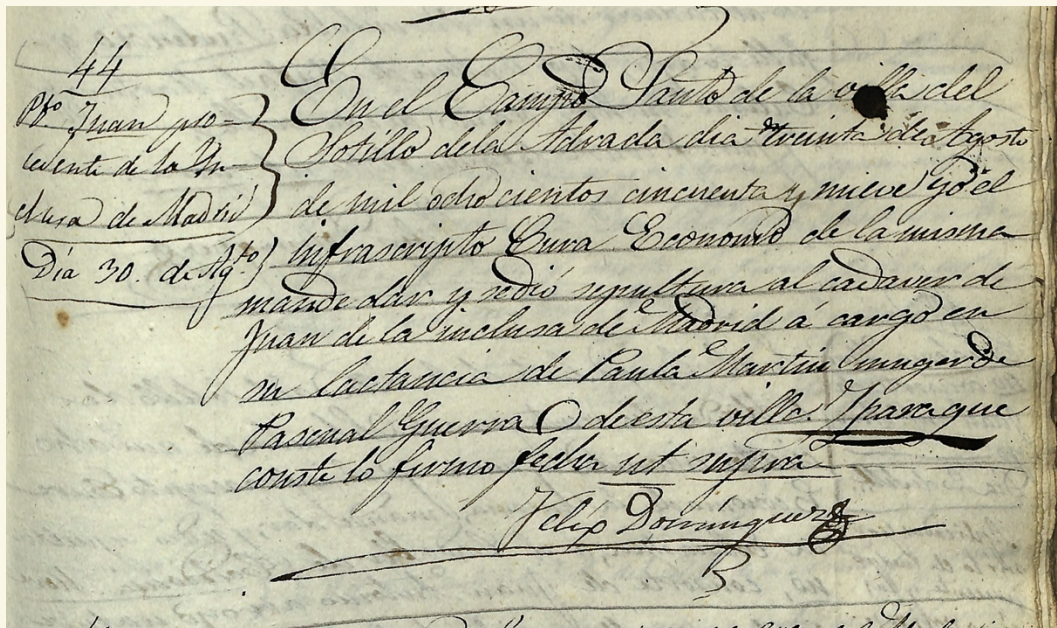 44
Pbo Juan pro-
cedente de la In
clusa de Madrid
Dia 30. de Agto
En el Campo Santo de la villa del
Sotillo dela Adrada dia treinta de Agosto
de mil ocho cientos cincuenta y nueve yo el
Infrascripto Cura Economo de la misma
mande dar y sedió sepultura al cadaver de
Juan de la inclusa de Madrid á cargo en
su lactancia de Paula Martin muger de
Pascual Guerra de esta villa. Y para que
conste lo firmo fecha ut supra
Felix Dominguez